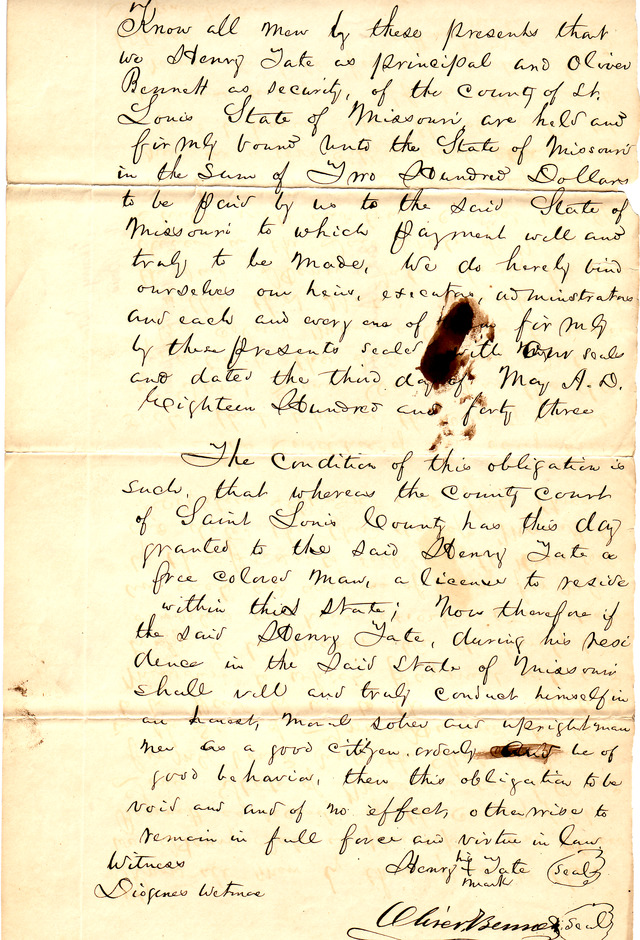 Know all men by these presents that
we Henry Tate as principal and Oliver
Bennett as security, of the County of St.
Louis State of Missouri, are held and
firmly bound unto the State of Missouri
in the sum of Two Hundred Dollars
to be paid by us to the said State of
Missouri to which payment well and
truly to be made, we do hereby bind
ourselves our heirs, executors, administrators
and each and every one of firmly
by these presents sealed with our seals
and dated the third day of May A.D.
Eighteen Hundred and forty three
The condition of this obligation is
such, that whereas the County Court
of Saint Louis County has this day
granted to the said Henry Tate a
free colored man, a license to reside
within this State; Now therefore if
the said Henry Tate, during his resi
dence in the said State of Missouri
shall well and truly conduct himself in
an honest, moral sober and upright man
ner as a good citizen, orderly be of
good behavior, then this obligation to be
void and and of no effect, otherwise to
remain in full force and virtue in law.
Witness Henry his + mark Tate (seal)
Diogenes Wetmore
Oliver Bennett (seal)